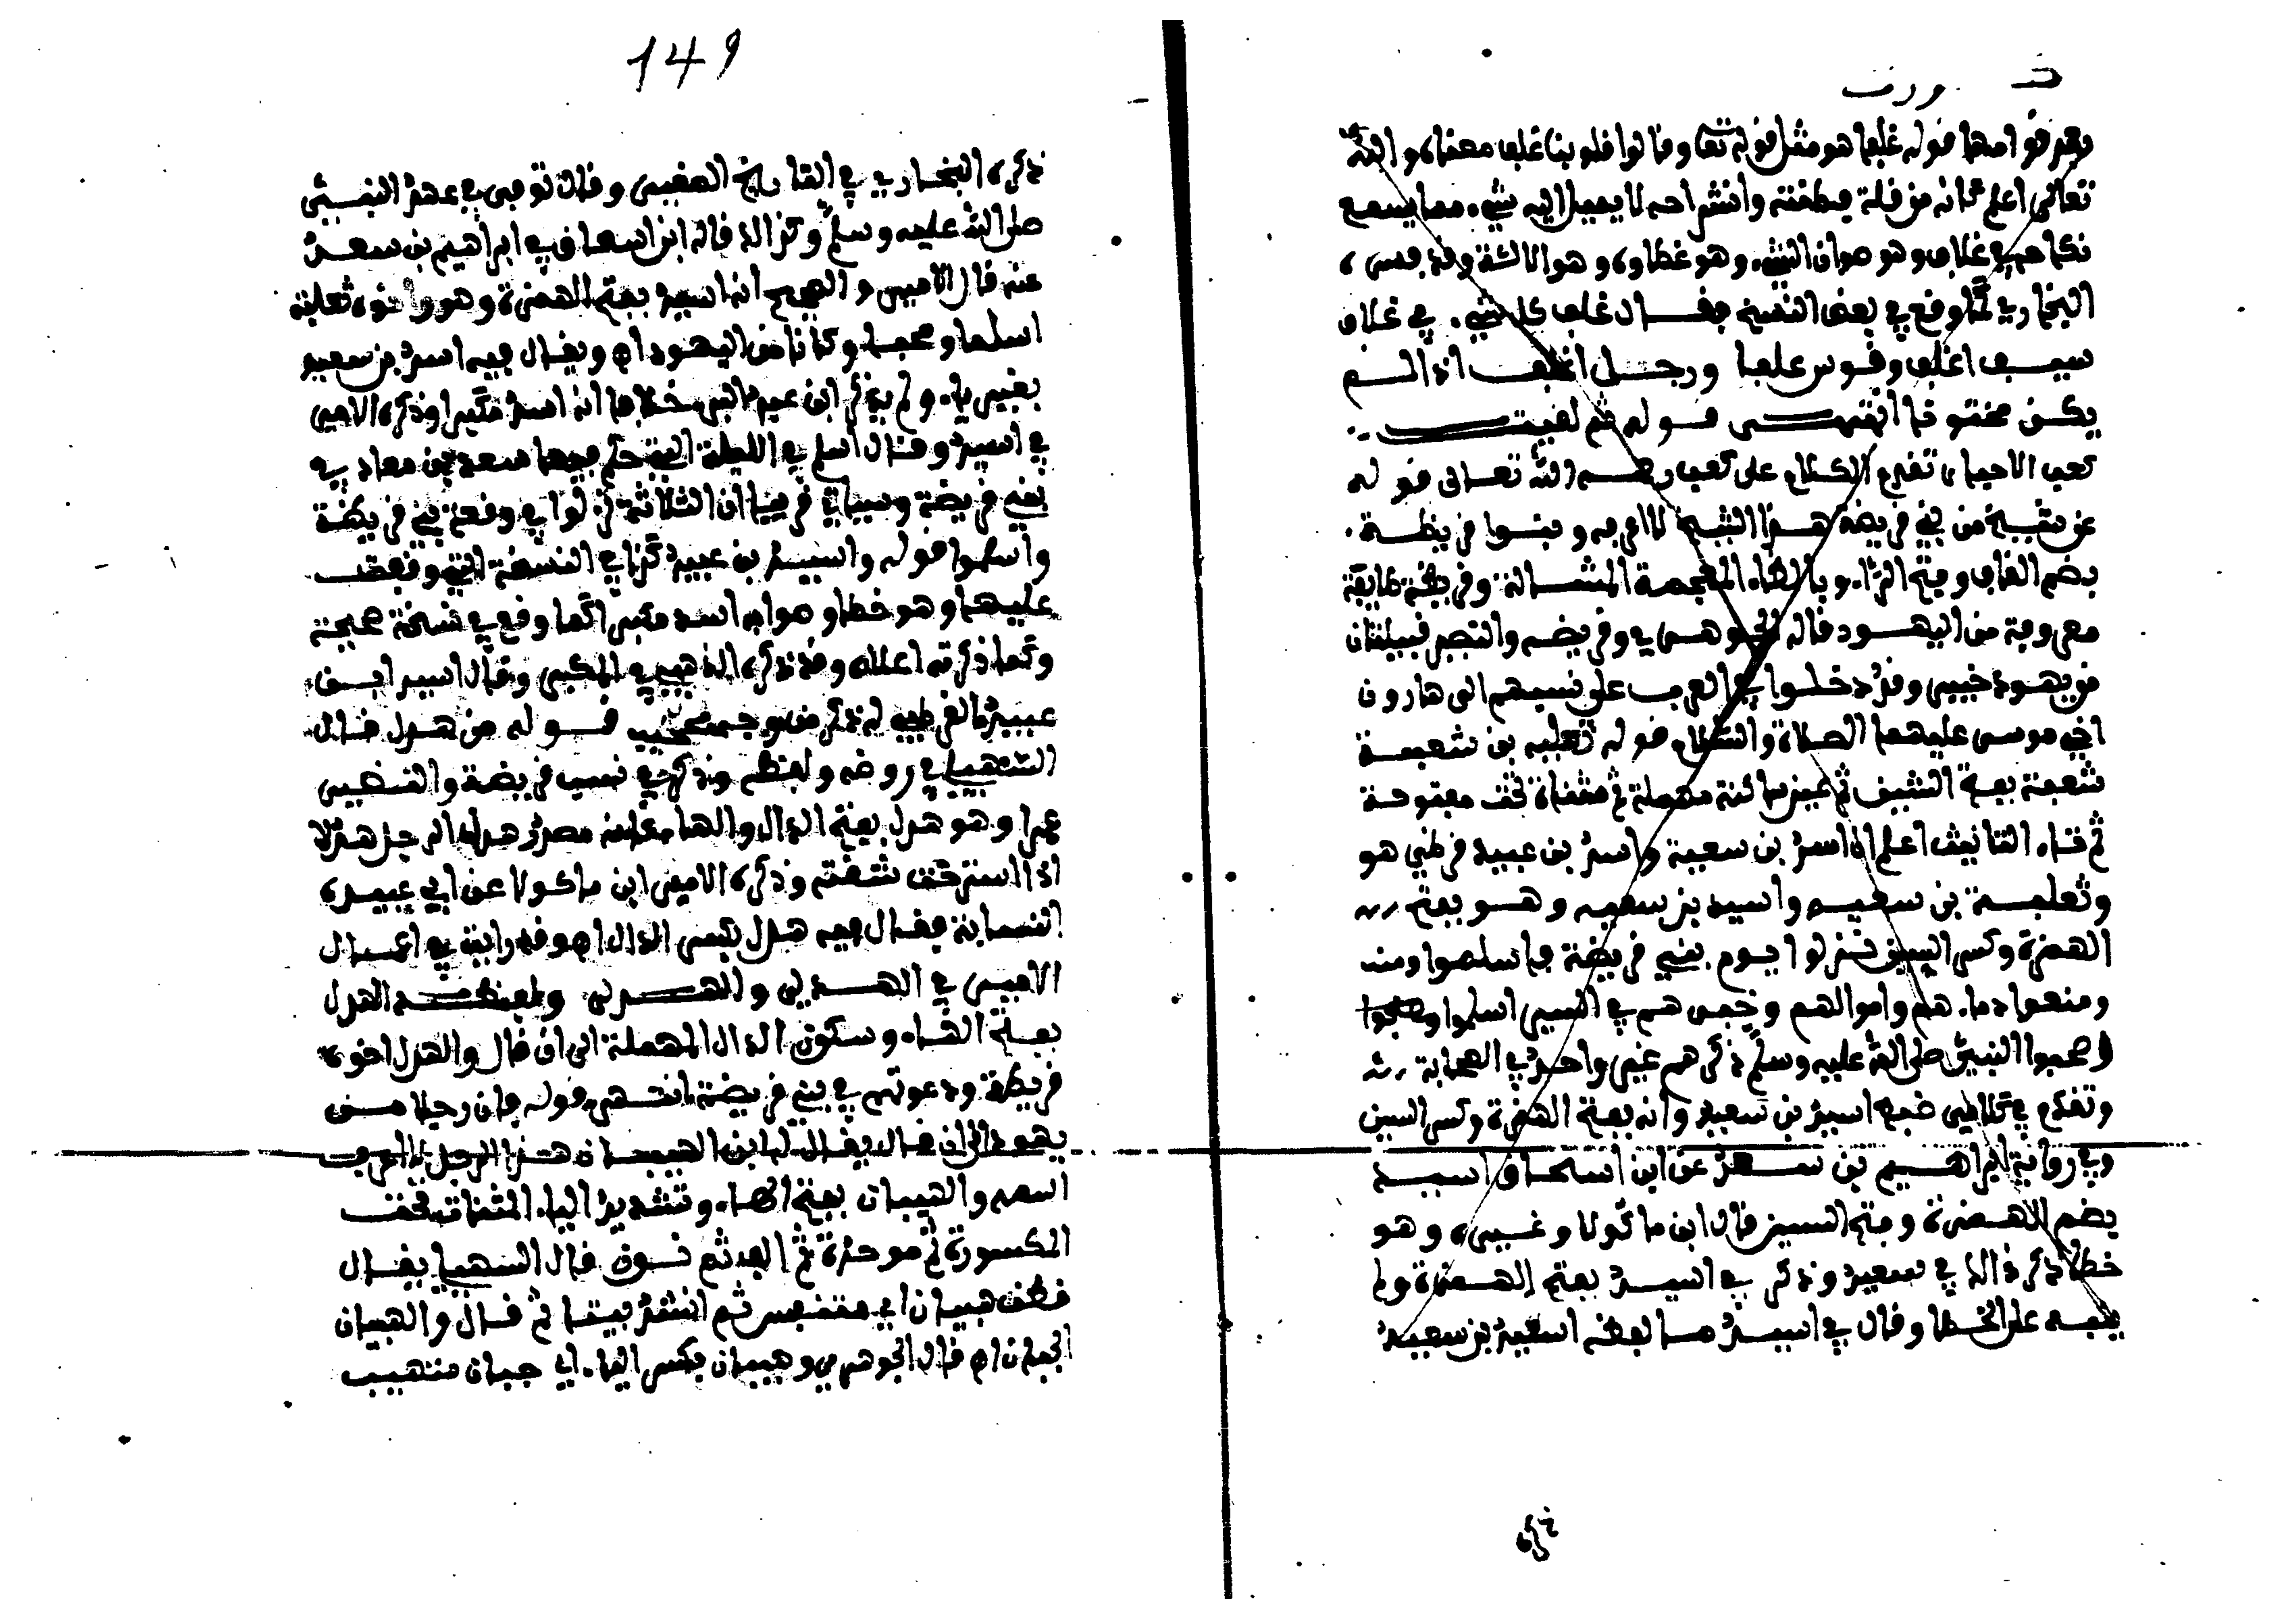 وهم قوامها قوله غلفا هو مثل قوله تعالى وقالوا قلوبنا غلف معناه والله
تعالى اعلم كانه من قلة فطنته وانشراحه لا يصل اليه شيء مما يسمع
فكانه في غلاف وهو صوان الشيء وهو غطاوه وهو الالة وقد فسره
البخاري كما وقع في بعض النسخ فقال غلف كل شيء في غلاف
سيف اغلف وقوس غلفا ورجل اغلف اذا لم
يكن مختونا انتهى قوله ثم لقيت
كعب الاحبار تقدم الكلام على كعب رحمه الله تعالى قوله
عن شيخ من بني قريضة هذا الشيخ لا اعرفه وبنوا قريظة
بضم القاف وفتح الراء وبالظاء المعجمة المشالة وقريظة طايفة
معروفة من اليهود قاله الجوهري وقريضه والنضير قبيلتان
من يهود خيبر وقد دخلوا في العرب على نسبهم الى هارون
اخي موسى عليهما الصلاة والسلام قوله ثعلبه بن شعية
شعية بفتح الشين ثم عين ساكنة مهملة ثم مثناة تحت مفتوحة
ثم تاء التانيث اعلم ان اسد بن سعية واسد بن عبيد قرظي هو
وثعلبة بن سعيه واسيد بن سعيه وهو بفتح
الهمزة وكسر السين نزلوا يوم بني قريضة فاسلموا ومنه
ومنعوا دماءهم واموالهم وخبرهم في السير اسلموا
وصحبوا النبي صلى الله عليه وسلم ذكرهم غير واحد في الصحابة
وتقدم في كلامي ضبط اسيد بن سعيد وانه بفتح الهمزة وكسر السين
وفي رواية ابراهيم بن سعد عن ابن اسحاق اسيد
بضم الاهمزة وفتح السين قال ابن ماكولا وغيره وهو
خطا ذكر ذالك في سعيد وذكر في اسيد بفتح الهمزة ولم
ينبه على الخطا وقال في اسيد ما لفظه اسيد بن سعيد
149
ذكره البخاري في التاريخ الصغير وقال توفى في عهد النبي
صلى الله عليه وسلم وكذالك قاله ابن اسحاق في ابراهيم بن سعد
عنه قال الامير والصحيح انه اسيد بفتح الهمزة وهو واخوه ثعلبة
اسلما وصحبا وكانا من اليهود اه ويقال فيه اسد بن سعيد
بغير ياء ولم يذكر ابن عبد البر خلافا انه اسد مكبرا وذكره الامير
في اسيد وقال اسلم في الليلة التي حكم فيها سعد بن معاذ في
بني قريضة وسياتي قريبا ان الثلاثة نزلوا في وقعة بني قريظة
واسلموا قوله واسيد بن عبيد كذا في النسخة التي وقفت
عليها وهو خطا وصوابه اسد مكبرا كما وقع في نسخة صحيحة
وكما ذكرته اعلاه وقد ذكره الذهبي في المكبر وقال اسيد ابن
عبيد القرظي له ذكر من وجه عجيب قوله من هدل قال
السهيلي في روضه ولفظه وذكر في نسب قريضة والنضير
عمرا وهو هدل بفتح الدال والهاء كانه مصدر هدل الرجل هدلا
اذا استرخت شفته وذكره الامير ابن ماكولا عن ابي عبيدة
النسابة فقال فيه هدل بكسر الدال اه وقد رايته في اكمال
الامير في الهذلي والهدلي ولفظه الهدل
بفتح الهاء وسكون الدال المهملة الى ان قال والهدل اخوه
قريظة ودعوتهم في بني قريضة انتهى قوله فان رجلا من
يهود الى ان قال يقال له ابن الهيبان هذا الرجل لا اعرف
اسمه والهيبان بفتح الهاء وتشديد الياء المثناة تحت
المكسورة ثم موحدة ثم الف ثم نون قال السهيلي يقال
قطن هيبان اي منتفش ثم انشد بيتا ثم قال والهيبان
الجبان اه قال الجوهري وهيبان بكسر الياء اي جبان متهيب